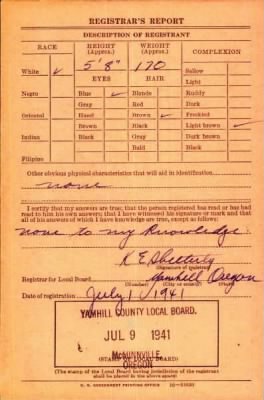 REGISTRAR'S REPORT
DESCRIPTION OF REGISTRANT
RACE HEIGHT (Approx.) WEIGHT (Approx.) COMPLEXION
White ✓ 5' 8" 170 Sallow
EYES HAIR Light
Negro Blue ✓ Blonde Ruddy
Gray Red Dark
Oriental Hazel Brown ✓ Freckled
Brown Black Light brown ✓
Indian Black Gray Dark brown
Bald Black
Filipino
Other obvious physical characteristics that will aid in identification
none
I certify that my answers are true; that the person registered has read or has had
read to him his own answers; that I have witnessed his signature or mark and that
all of his answers of which I have knowledge are true, except as follows:
none to my knowledge.
(Signature of registrar)
Registrar for Local Board Yamhill Oregon
(Number) (City or county) (State)
Date of registration July 1, 1941
YAMHILL COUNTY LOCAL BOARD.
JUL 9 1941
McMINNVILLE,
OREGON
(STAMP OF LOCAL BOARD)
(The stamp of the Local Board having jurisdiction of the registrant
shall be placed in the above space.)
U. S. GOVERNMENT PRINTING OFFICE